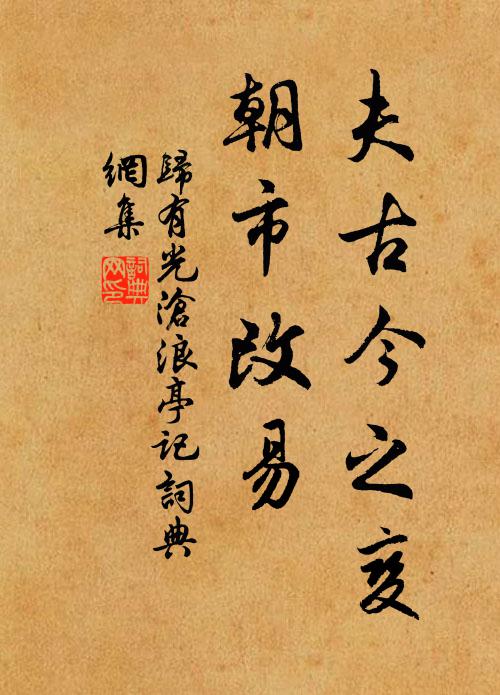 夫古今之变
朝市改易
歸有光滄浪亭记詞典
網集
詞典
网印